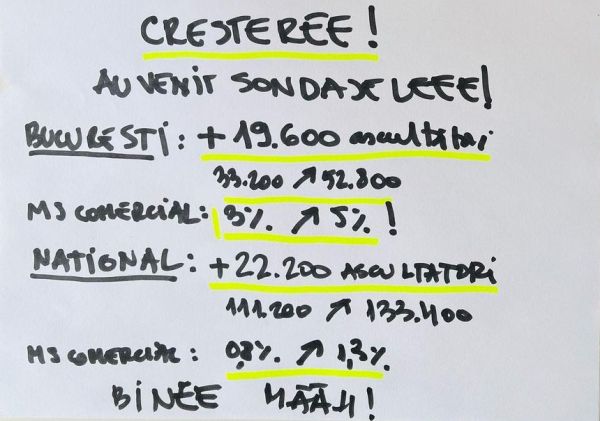 CRESTEREE!
AU VENIT SONDAJELEEE!
BUCURESTI: + 19.600 ascultatori
33.200 ↗ 52.800
MS COMERCIAL: 3% ↗ 5% !
NATIONAL: + 22.200 ASCULTATORI
111.200 ↗ 133.400
MS COMERCIAL: 0,8% ↗ 1,3%
BINEE MĂĂĂ!